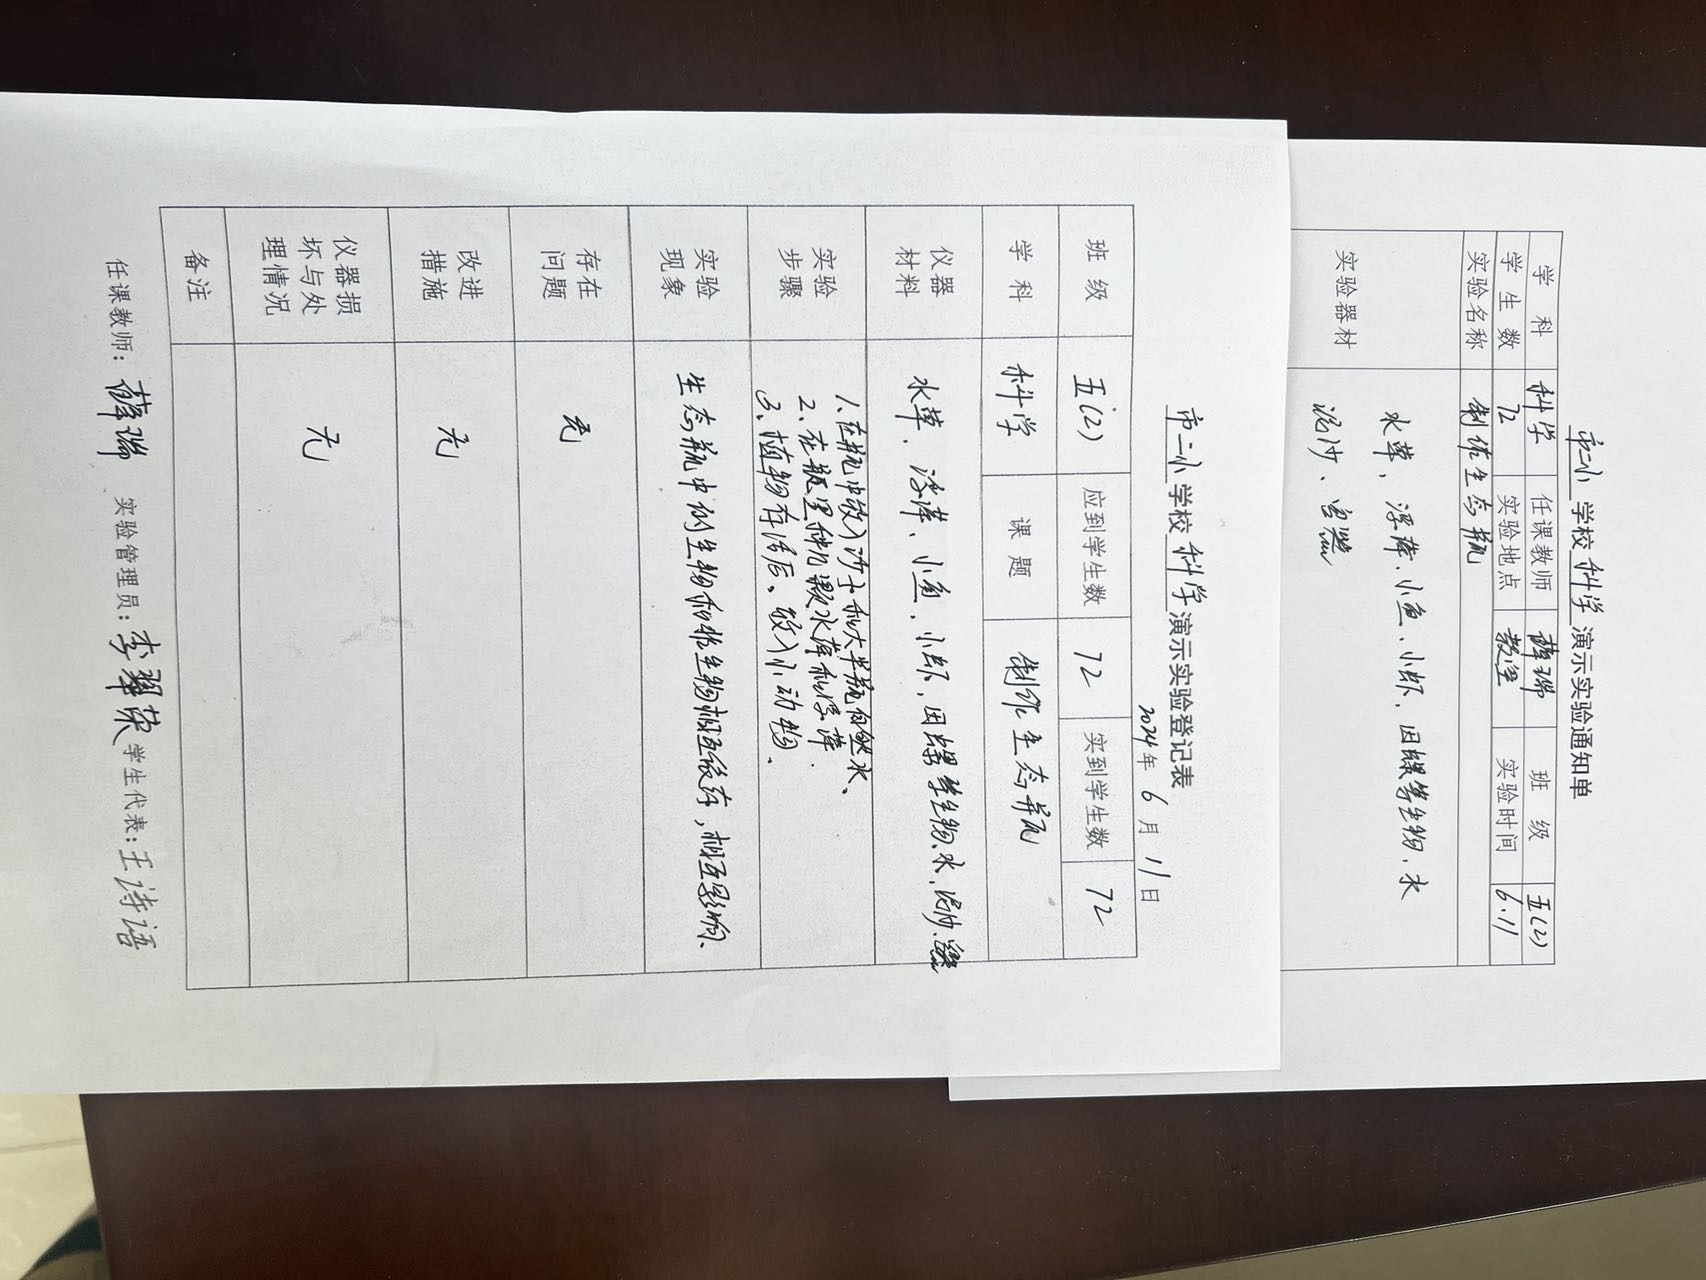 市二小学校科学演示实验通知单
学科 科学 任课教师 薛瑞 班级 五(2)
学生数 72 实验地点 教室 实验时间 6.11
实验名称 制作生态瓶
实验器材
水草、浮萍、小鱼、小虾、田螺等生物、水
泥沙、容器
市二小学校科学演示实验登记表
2024年6月11日
班级 五(2) 应到学生数 72 实到学生数 72
学科 科学 课题 制作生态瓶
仪器材料 水草、浮萍、小鱼、小虾、田螺等生物、水、泥沙、容器
实验步骤
1、在瓶中放入沙子和大半瓶自然水、
2、在瓶里种几颗水草和浮萍.
3、植物存活后、放入小动物、
实验现象 生态瓶中的生物和非生物相互依存,相互影响、
存在问题 无
改进措施 无
仪器损坏与处理情况 无
备注
任课教师:薛瑞 实验管理员:李翠荣 学生代表:王诗语